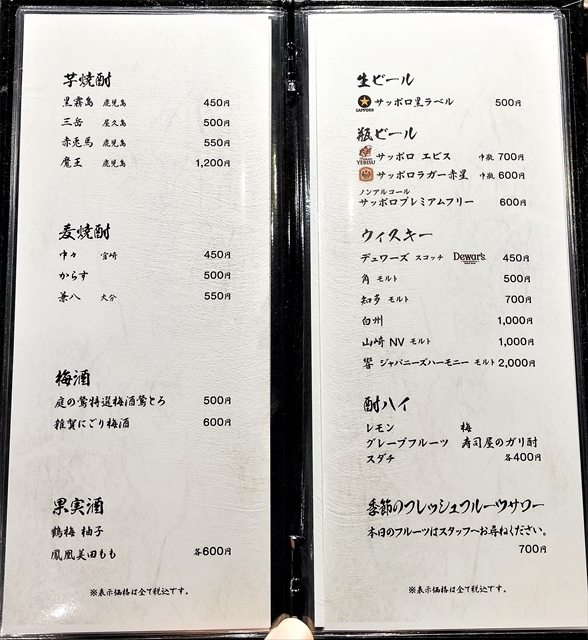 芋焼酎
黒霧島 鹿児島 450円
三岳 屋久島 500円
赤兎馬 鹿児島 550円
魔王 鹿児島 1,200円
麦焼酎
中々 宮崎 450円
からす 500円
兼八 大分 550円
梅酒
庭の鶯特選梅酒鶯とろ 500円
雑賀にごり梅酒 600円
果実酒
鶴梅 柚子
鳳凰美田もも 各600円
※表示価格は全て税込です。
生ビール
SAPPORO サッポロ黒ラベル 500円
瓶ビール
YEBISU サッポロ エビス 中瓶 700円
サッポロラガー赤星 中瓶 600円
ノンアルコール
サッポロプレミアムフリー 600円
ウィスキー
デュワーズ スコッチ Dewar's 450円
角 モルト 500円
知多 モルト 700円
白州 1,000円
山崎 NV モルト 1,000円
響 ジャパニーズハーモニー モルト 2,000円
酎ハイ
レモン 梅
グレープフルーツ 寿司屋のガリ酎
スダチ 各400円
季節のフレッシュフルーツサワー
本日のフルーツはスタッフへお尋ねください。
700円
※表示価格は全て税込です。